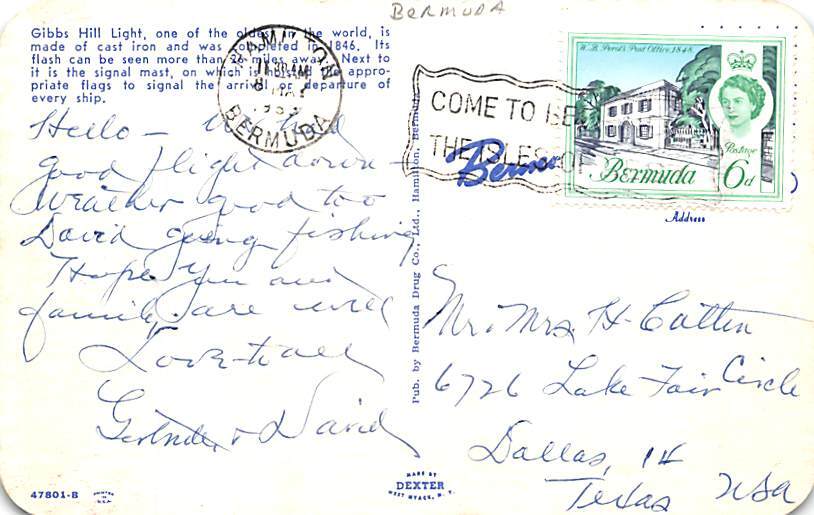 BERMUDA
Gibbs Hill Light, one of the oldest in the world, is
made of cast iron and was completed in 1846. Its
flash can be seen more than 26 miles away. Next to
it is the signal mast, on which is hoisted the appro-
priate flags to signal the arrival or departure of
every ship.
Hello — We had
good flight down —
Weather good too
David going fishing
Hope you and
family are well
Love to all
Gertrude & David
47801-B
HAMILTON
11 30 AM
BERMUDA
COME TO BE
THE ISLES OF
W. B. Perot's Post Office, 1848
Postage
Bermuda
6d
Address
Pub. by Bermuda Drug Co., Ltd., Hamilton, Bermuda
Mr. Mrs. H. Catten
6726 Lake Fair Circle
Dallas, 14
Texas USA
MADE BY
DEXTER
WEST NYACK, N. Y.